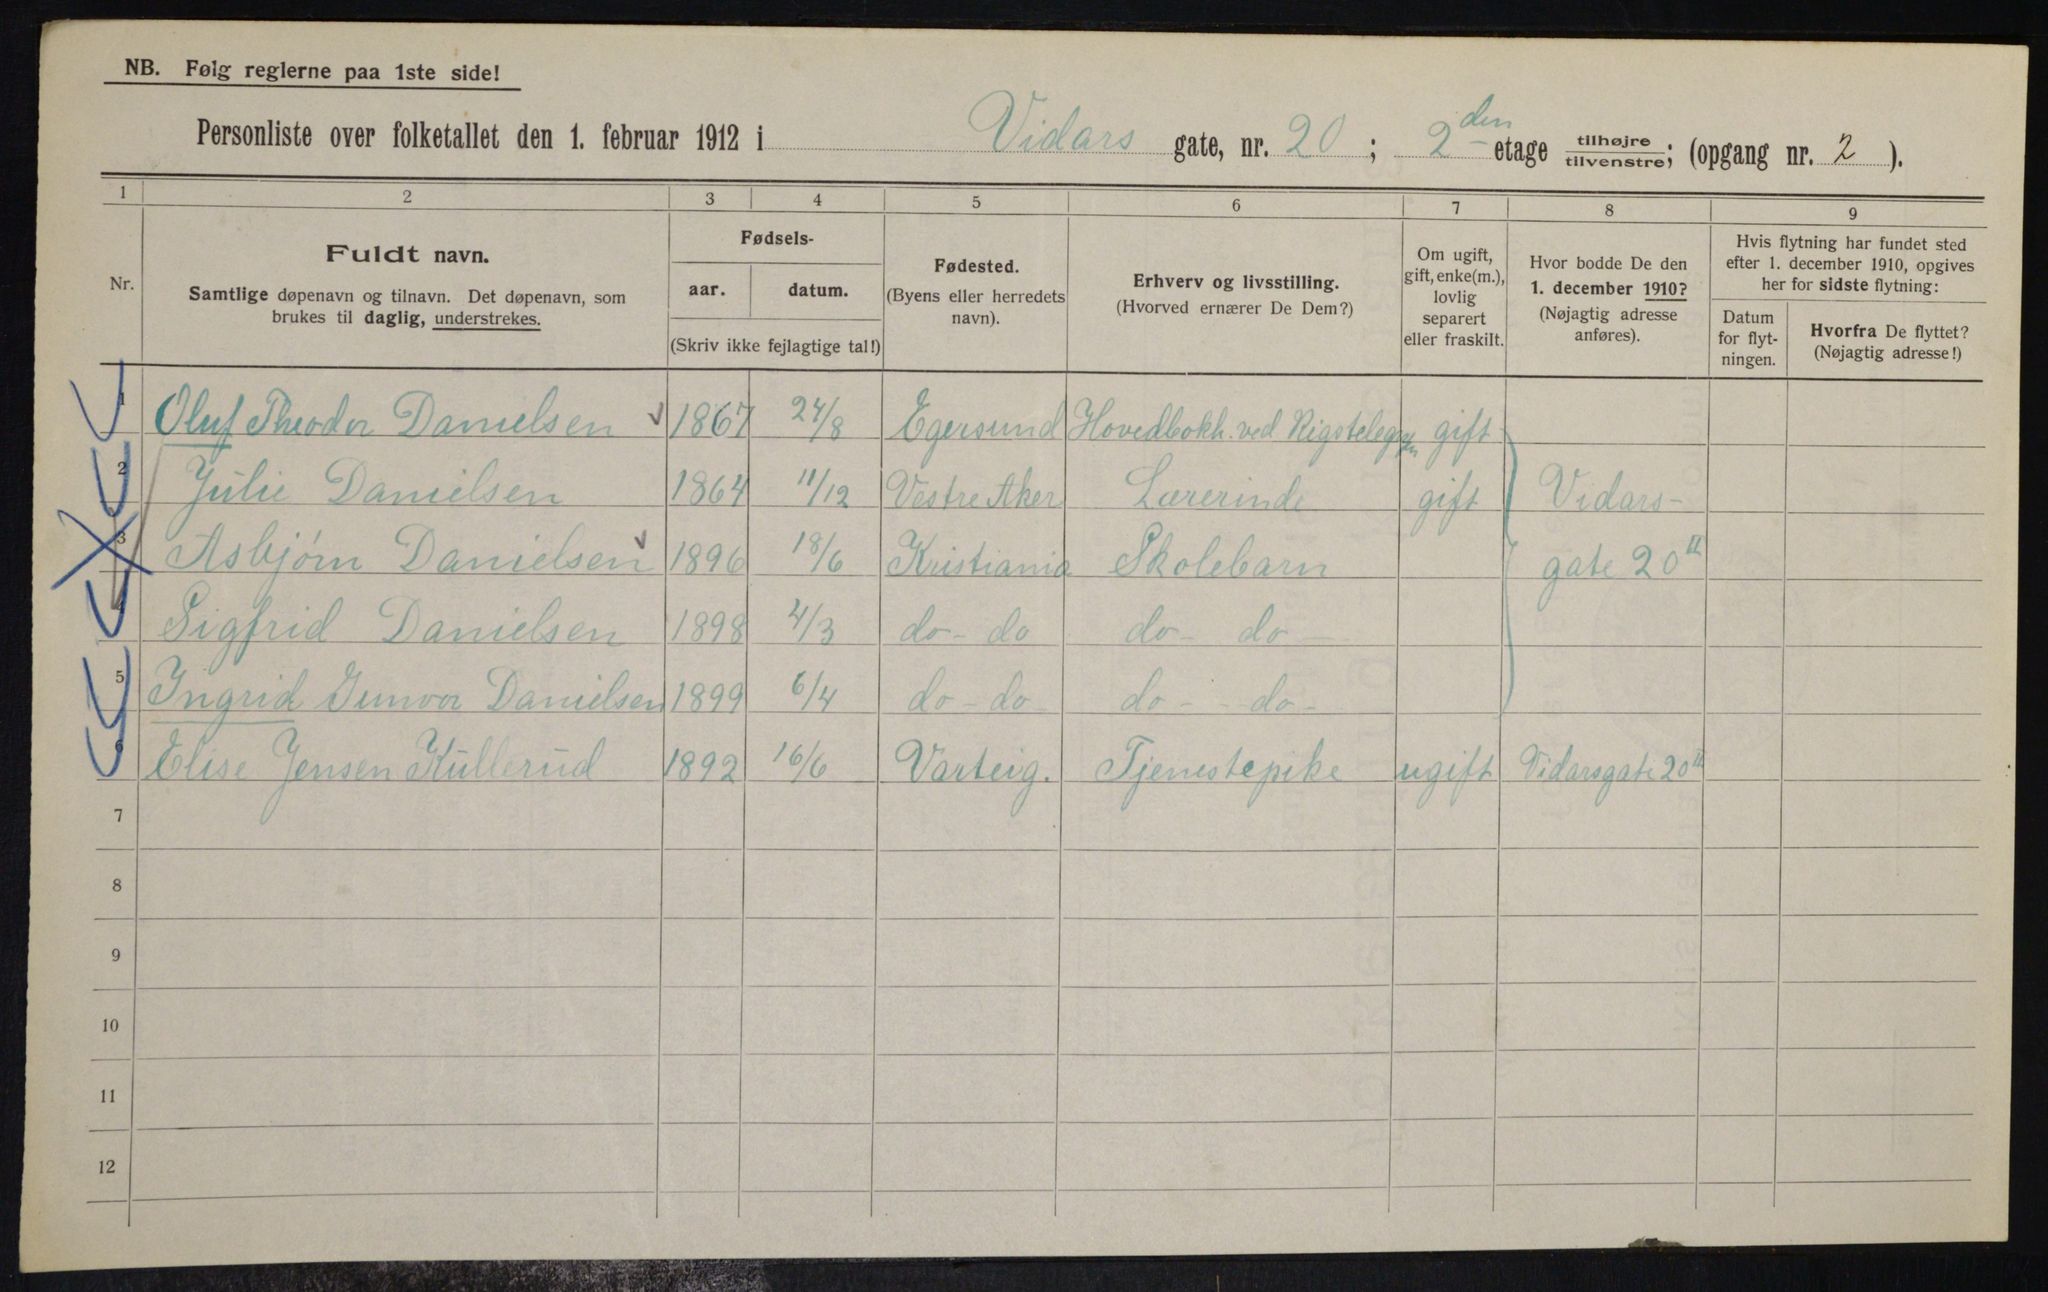 NB. Følg reglerne paa 1ste side!
Personliste over folketallet den 1. februar 1912 i Vidars gate, nr. 20; 2den etage tilhøjre/tilvenstre; (opgang nr. 2).
1 2 3 4 5 6 7 8 9
Nr.
Fuldt navn.
Samtlige døpenavn og tilnavn. Det døpenavn, som
brukes til daglig, understrekes.
Fødsels-
aar. datum.
(Skriv ikke fejlagtige tal!)
Fødested.
(Byens eller herredets
navn).
Erhverv og livsstilling.
(Hvorved ernærer De Dem?)
Om ugift,
gift, enke(m.),
lovlig
separert
eller fraskilt.
Hvor bodde De den
1. december 1910?
(Nøjagtig adresse
anføres).
Hvis flytning har fundet sted
efter 1. december 1910, opgives
her for sidste flytning:
Datum
for flyt-
ningen.
Hvorfra De flyttet?
(Nøjagtig adresse!)
1 Oluf Theodor Danielsen 1867 24/8 Egersund Hovedbokh. ved Rigstelegrafen gift
2 Julie Danielsen 1864 11/12 Vestre Aker Lærerinde gift Vidars-
3 Asbjørn Danielsen 1896 18/6 Kristiania Skolebarn gate 20 II
4 Sigfrid Danielsen 1898 4/3 do - do do - do -
5 Ingrid Gunvor Danielsen 1899 6/4 do - do do - do -
6 Elise Jensen Kullerud 1892 16/6 Varteig. Tjenestepike ugift Vidarsgate 20 II
7
8
9
10
11
12